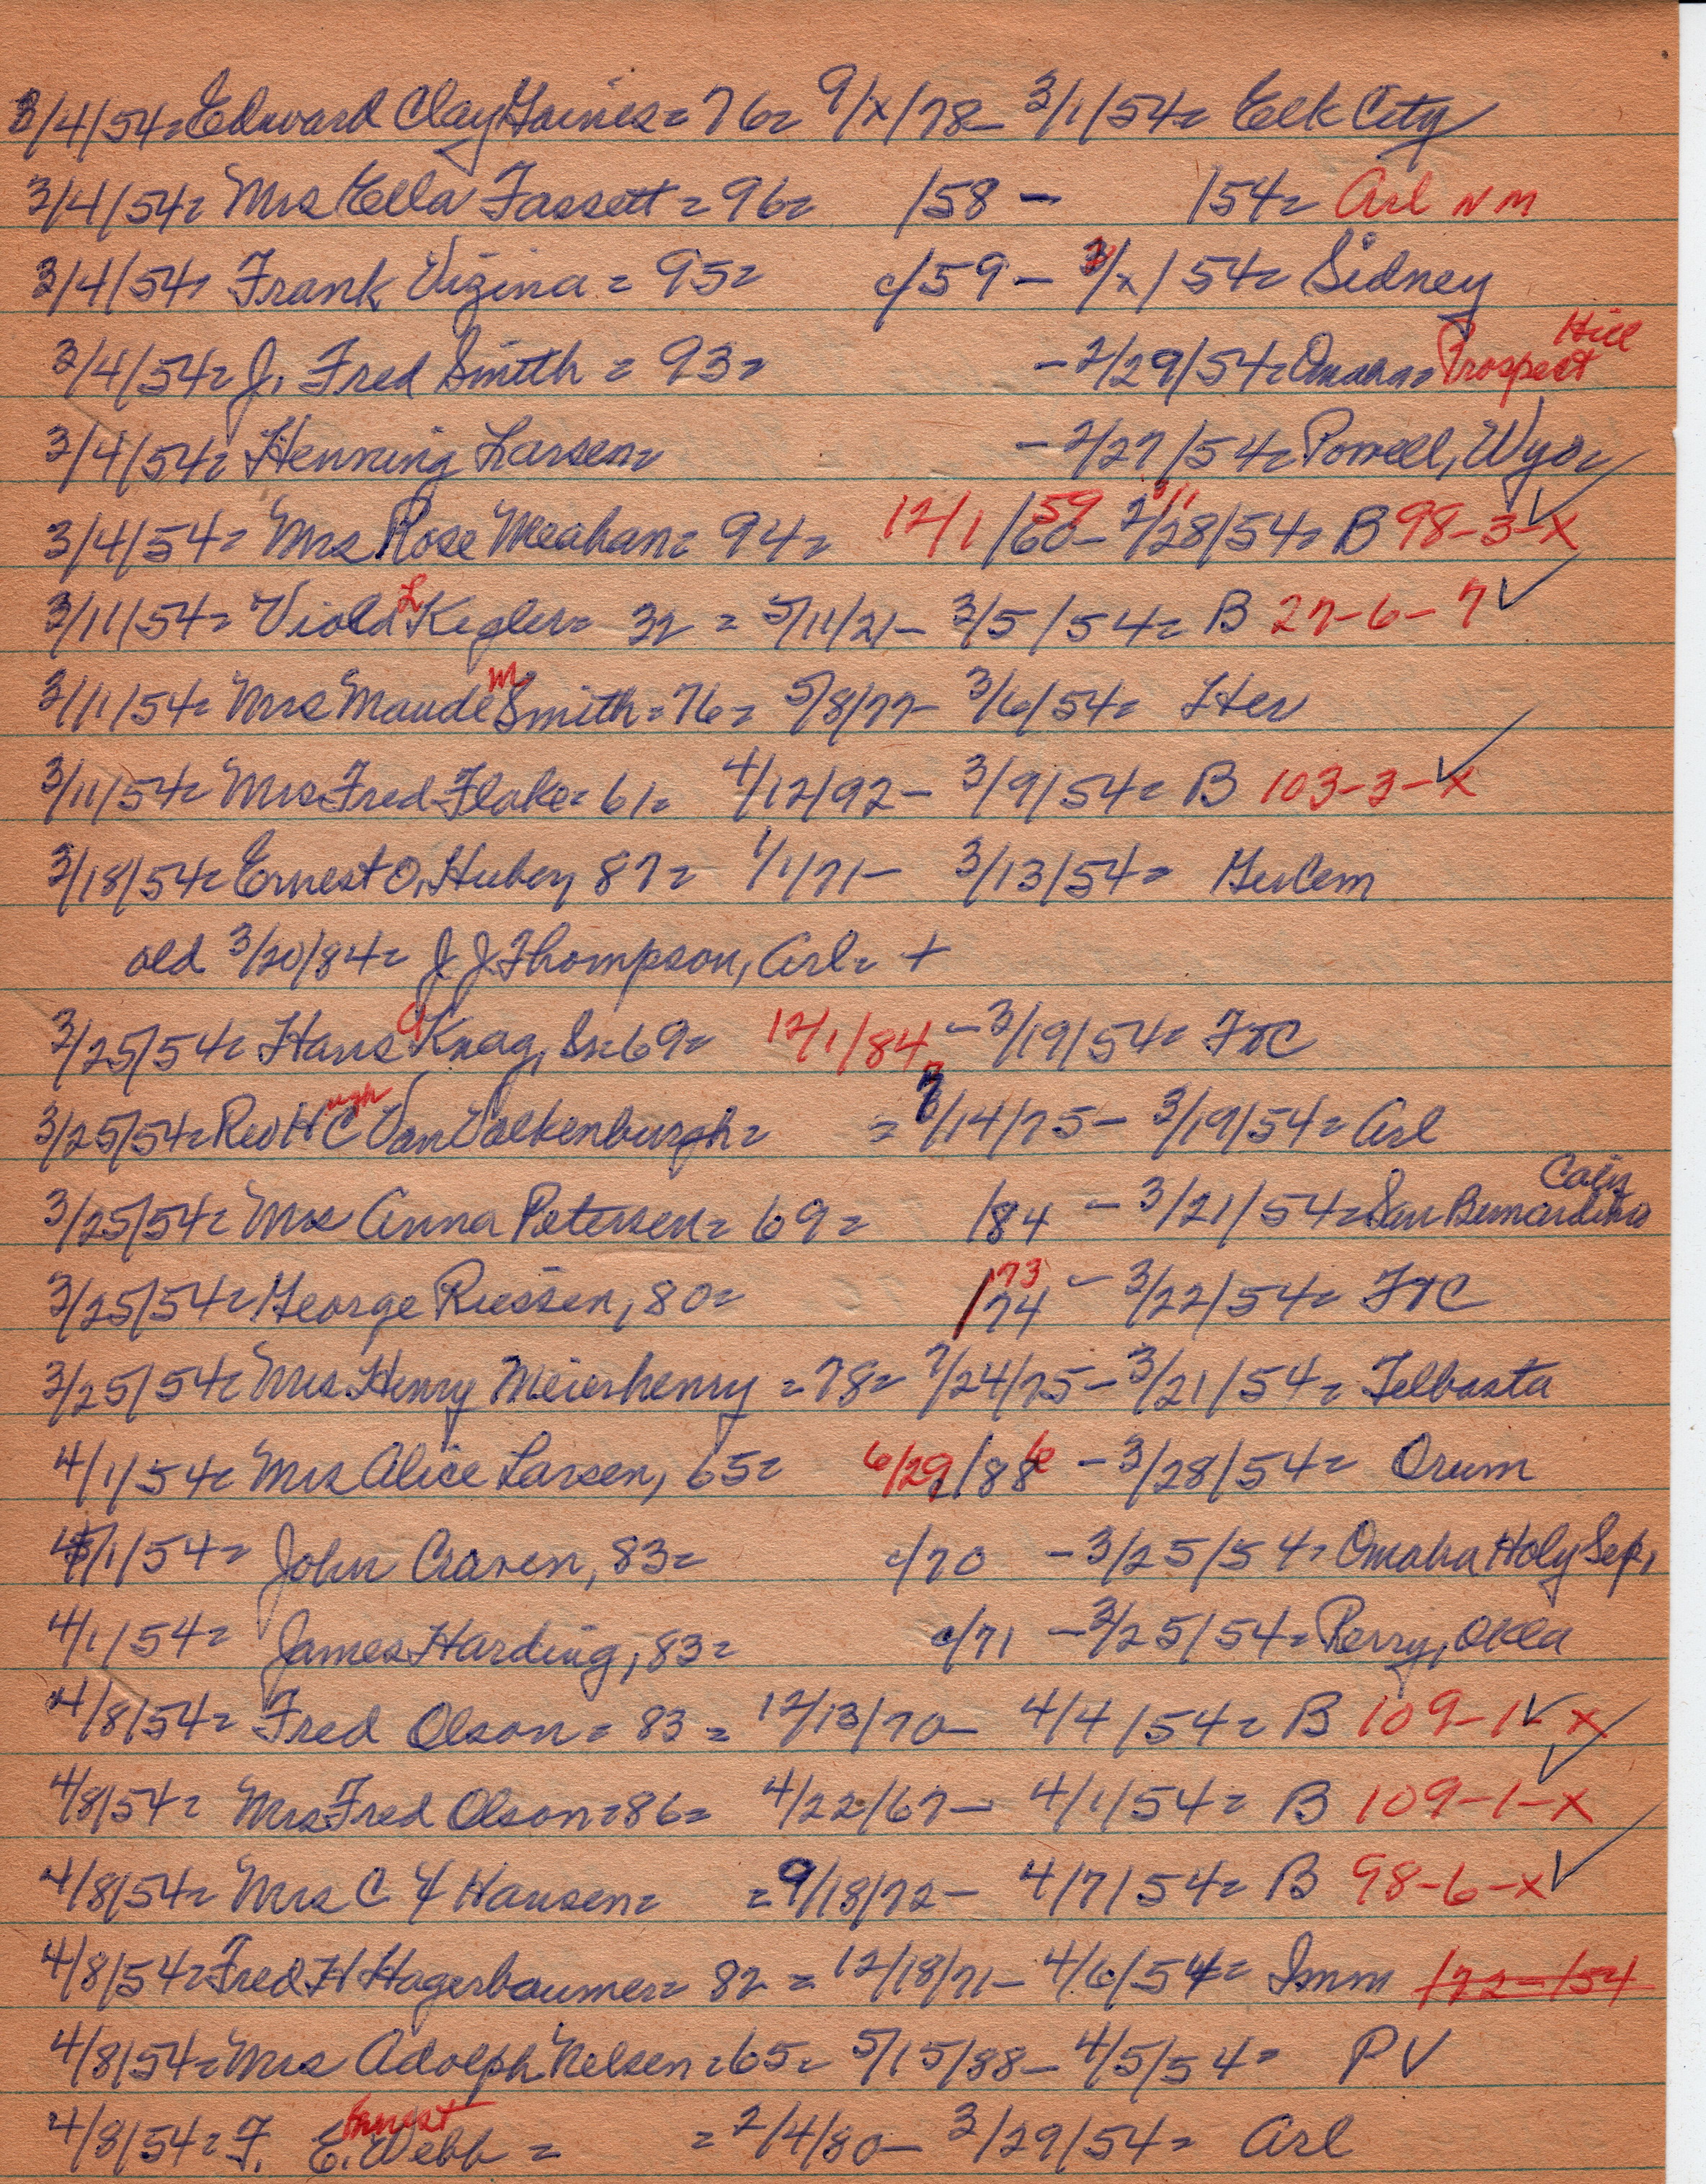 3/4/54= Edward Clay Gaines= 76= 9/x/78- 3/1/54= Elk City
3/4/54= Mrs Ella Fassett = 96= /58 - /54= Arl N M
3/4/54= Frank Vizina = 95= c/59 - 3/x/54= Sidney
3/4/54= J. Fred Smith = 93= - 2/29/54= Omaha= Prospect Hill
3/4/54= Henning Larsen= - 2/27/54= Powell, Wyo=
3/4/54= Mrs Rose Meahan= 94= 12/1/60 59 - 2/28/54 3/1 = B 98-3-x ✓
3/11/54= Viola L Kegler= 32 = 5/11/21- 3/5/54= B 27-6-7 ✓
3/11/54= Mrs Maude M Smith= 76= 5/8/77- 3/6/54= Her
3/11/54= Mrs Fred Flake= 61= 4/12/92- 3/9/54= B 103-3-x ✓
3/18/54= Ernest O. Huben 87= 1/1/71- 3/13/54= GerCem
old 3/20/84= J J Thompson, Arl= +
3/25/54= Hans C Knag, Sr= 69= 12/1/84 - 3/19/54= FTC
3/25/54= Rev H ugh C Van Valkenburgh= = 7/14/75- 3/19/54= Arl
3/25/54= Mrs Anna Petersen= 69= /84 - 3/21/54= San Bernardino Calif
3/25/54= George Riessen, 80= /74 73 - 3/22/54= FTC
3/25/54= Mrs Henry Meierhenry = 78= 7/24/75- 3/21/54= Telbasta
4/1/54= Mrs Alice Larsen, 65= 6/29/88 - 3/28/54= Orum
4/1/54= John Craven, 83= c/70 - 3/25/54= Omaha Holy Sep.
4/1/54= James Harding, 83= c/71 - 3/25/54= Perry, Okla
4/8/54= Fred Olson= 83 = 12/13/70- 4/4/54= B 109-1-x ✓
4/8/54= Mrs Fred Olson= 86= 4/22/67- 4/1/54= B 109-1-x ✓
4/8/54= Mrs C Y Hansen= = 9/18/72- 4/7/54= B 98-6-x ✓
4/8/54= Fred H Hagerbaumer= 82 = 12/18/71- 4/6/54= Imm 172-154
4/8/54= Mrs Adolph Nelsen= 65= 5/15/88- 4/5/54= P V
4/8/54= F. E. Ernest Webb = = 2/4/80- 3/29/54= Arl